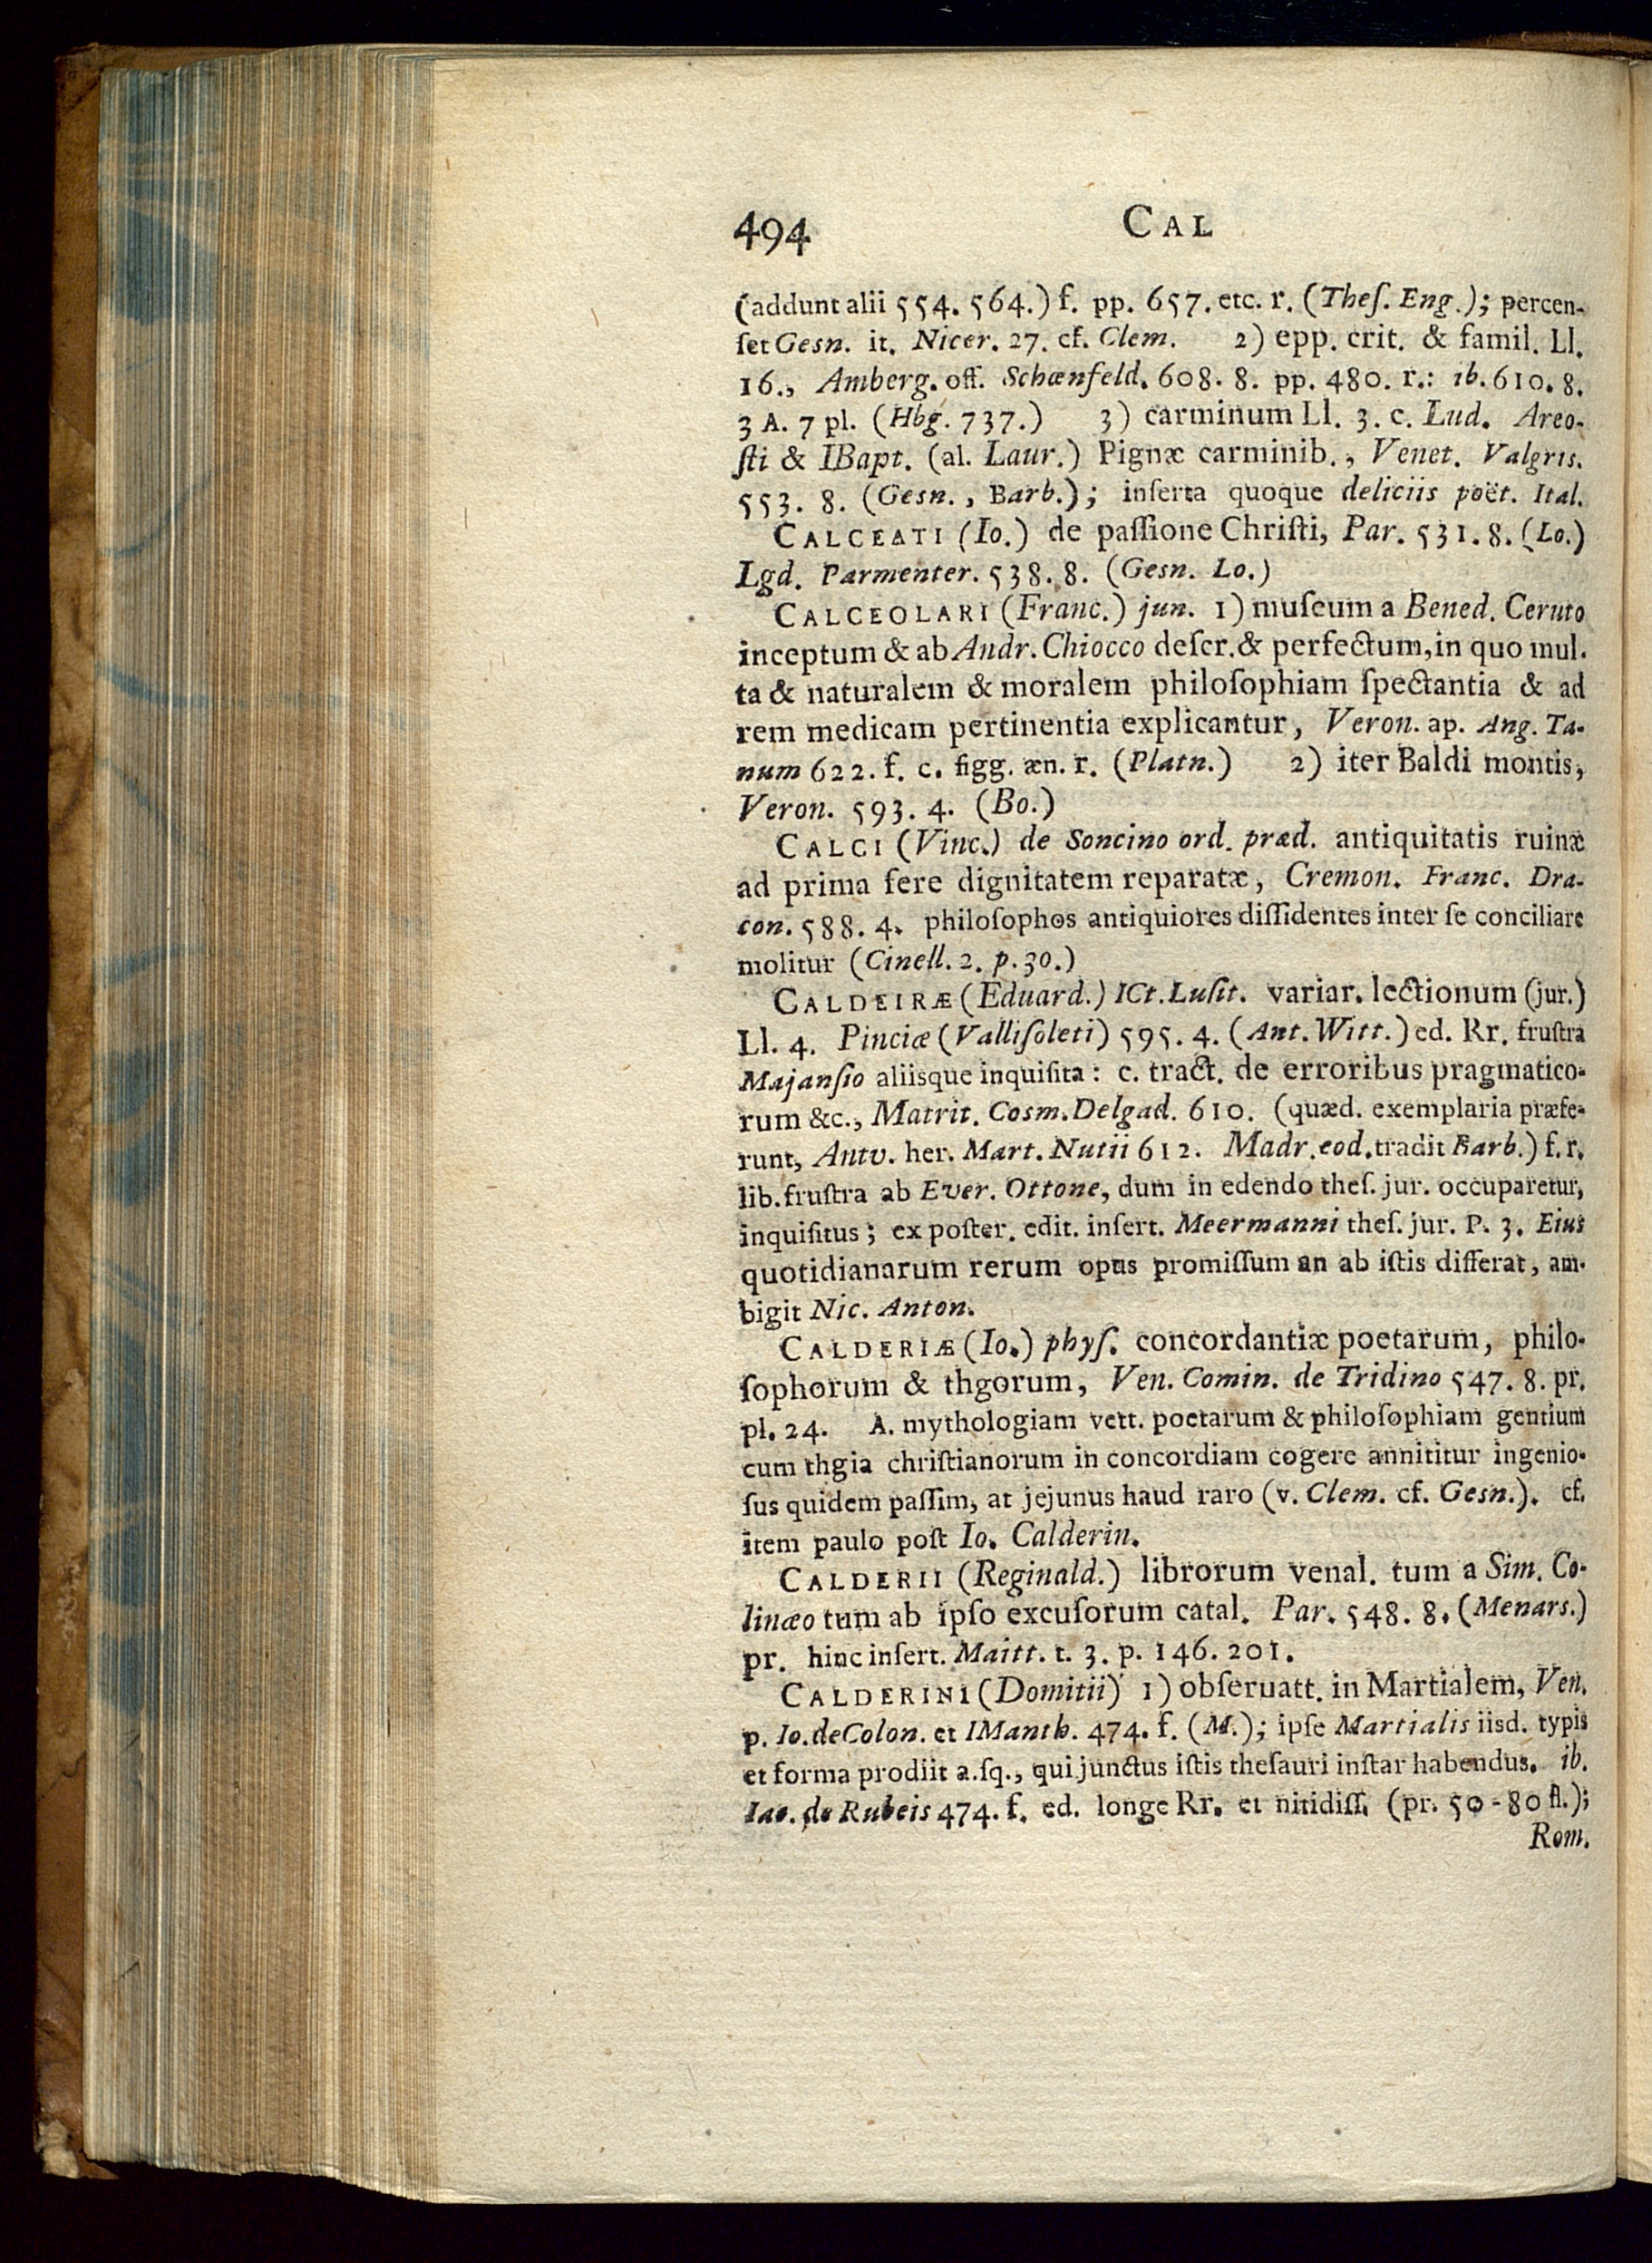 494 CAL
(addunt alii 554. 564.) f. pp. 657. etc. r. (Theſ. Eng.); percen-
ſet Geſn. it. Nicer. 27. cf. Clem. 2) epp. crit. & famil. Ll.
16., Amberg. off. Schœnfeld. 608. 8. pp. 480. r.: ib. 610. 8.
3 A. 7 pl. (Hbg. 737.) 3) carminum Ll. 3. c. Lud. Areo-
ſti & IBapt. (al. Laur.) Pignæ carminib., Venet. Valgris.
553. 8. (Geſn., Barb.); inſerta quoque deliciis poët. Ital.
CALCEATI (Io.) de paſſione Chriſti, Par. 531. 8. (Lo.)
Lgd. Parmenter. 538. 8. (Geſn. Lo.)
CALCEOLARI (Franc.) jun. 1) muſeum a Bened. Ceruto
inceptum & ab Andr. Chiocco deſcr. & perfectum, in quo mul-
ta & naturalem & moralem philoſophiam ſpectantia & ad
rem medicam pertinentia explicantur, Veron. ap. Ang. Ta-
num 622. f. c. figg. æn. r. (Platn.) 2) iter Baldi montis,
Veron. 593. 4. (Bo.)
CALCI (Vinc.) de Soncino ord. præd. antiquitatis ruinæ
ad prima fere dignitatem reparatæ, Cremon. Franc. Dra-
con. 588. 4. philoſophos antiquiores diſſidentes inter ſe conciliare
molitur (Cinell. 2. p. 30.)
CALDEIRÆ (Eduard.) ICt. Luſit. variar. lectionum (jur.)
Ll. 4. Pinciæ (Valliſoleti) 595. 4. (Ant. Witt.) ed. Rr. fruſtra
Majanſio aliisque inquiſita: c. tract. de erroribus pragmatico-
rum &c., Matrit. Cosm. Delgad. 610. (quæd. exemplaria præfe-
runt, Antv. her. Mart. Nutii 612. Madr. eod. tradit Barb.) f. r.
lib. fruſtra ab Ever. Ottone, dum in edendo theſ. jur. occuparetur,
inquiſitus; ex poſter. edit. inſert. Meermanni theſ. jur. P. 3. Eius
quotidianarum rerum opus promiſſum an ab iſtis differat, am-
bigit Nic. Anton.
CALDERIÆ (Io.) phyſ. concordantiæ poetarum, philo-
ſophorum & thgorum, Ven. Comin. de Tridino 547. 8. pr.
pl. 24. A. mythologiam vett. poetarum & philoſophiam gentium
cum thgia chriſtianorum in concordiam cogere annititur ingenio-
ſus quidem paſſim, at jejunus haud raro (v. Clem. cf. Geſn.). cf.
item paulo poſt Io. Calderin.
CALDERII (Reginald.) librorum venal. tum a Sim. Co-
linæo tum ab ipſo excuſorum catal. Par. 548. 8. (Menars.)
pr. hinc inſert. Maitt. t. 3. p. 146. 201.
CALDERINI (Domitii) 1) obſeruatt. in Martialem, Ven.
p. Io. de Colon. et IManth. 474. f. (M.); ipſe Martialis iisd. typis
et forma prodiit a. ſq., qui junctus iſtis theſauri inſtar habendus. ib.
Iac. de Rubeis 474. f. ed. longe Rr. et nitidiſſ. (pr. 50-80 fl.);
Rom.